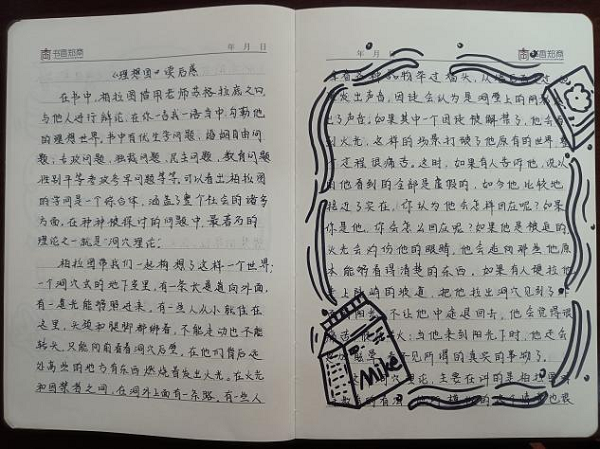 书香知意
年 月 日
《理想国》读后感
在书中，柏拉图借用老师苏格拉底之口，
与他人进行辩论，在你一言我一语当中，勾勒他
的理想世界。书中有优生学问题，婚姻自由问
题，专政问题，独裁问题，民主问题，教育问题
性别平等参政参军问题等等，可以看出柏拉图
的学问是一个综合体，涵盖了整个社会的诸多
方面。在种种被探讨的问题中，最著名的
理论之一就是"洞穴理论"。
柏拉图带我们一起构想了这样一个世界：
一个洞穴式的地下室里，有一条长长通道向外面，
有一星光能够照进来。有一些人从小就住在
这里，头颈和腿脚都绑着，不能走动也不能
转头，只能向前看着洞穴后壁。在他们背后远
处高些的地方有东西燃烧着发出火光。在火光
和囚禁者之间，在洞外上面有一条路。有一些人
书香知意
年 月 日
过墙头，从
发出声音，囚徒会认为是洞壁上的阴影
出了声音。如果其中一个囚徒被解禁了，他会看
到火光，这样的场景打破了他原有的世界，
过程很痛苦。这时，如果有人告诉他，说从
前他看到的全部是虚假的，如今他比较地
接近了实在，你认为他会怎样回应呢？如果
你是他，你会怎么回应呢？如果他是被迫的
火光会灼伤他的眼睛，他会走向那些他原
本能够看得清楚的东西，如果有人硬拉他
走上陡峭的坡道，把他拉出洞穴见到了外
阳光，不让他中途退回去，他会觉得很
当他来到阳光下时，他还会
见所得的真实的事物了。
理论，主要在讲的是柏拉图对
Mike